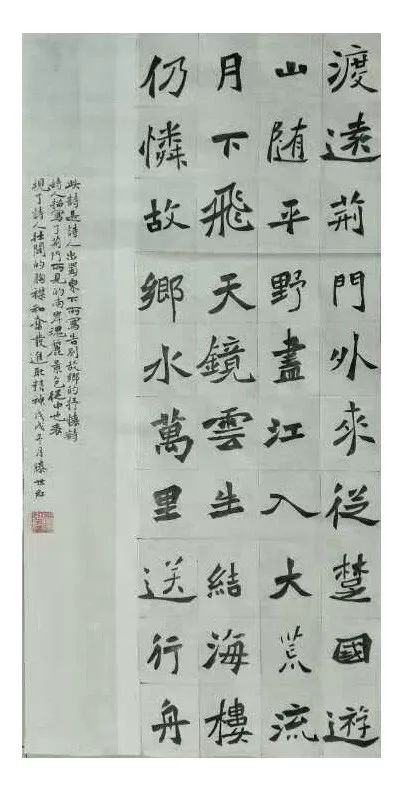 渡遠荊門外來從楚國遊
山随平野盡江入大荒流
月下飛天鏡雲生結海樓
仍憐故鄉水萬里送行舟
此詩是詩人出蜀東下所寫告别故鄉的抒懷詩
詩人描寫了荊门所見的两岸瑰麗景色從中也表
現了詩人壯闊的胸襟和奮發進取精神戊戌月滕世紅